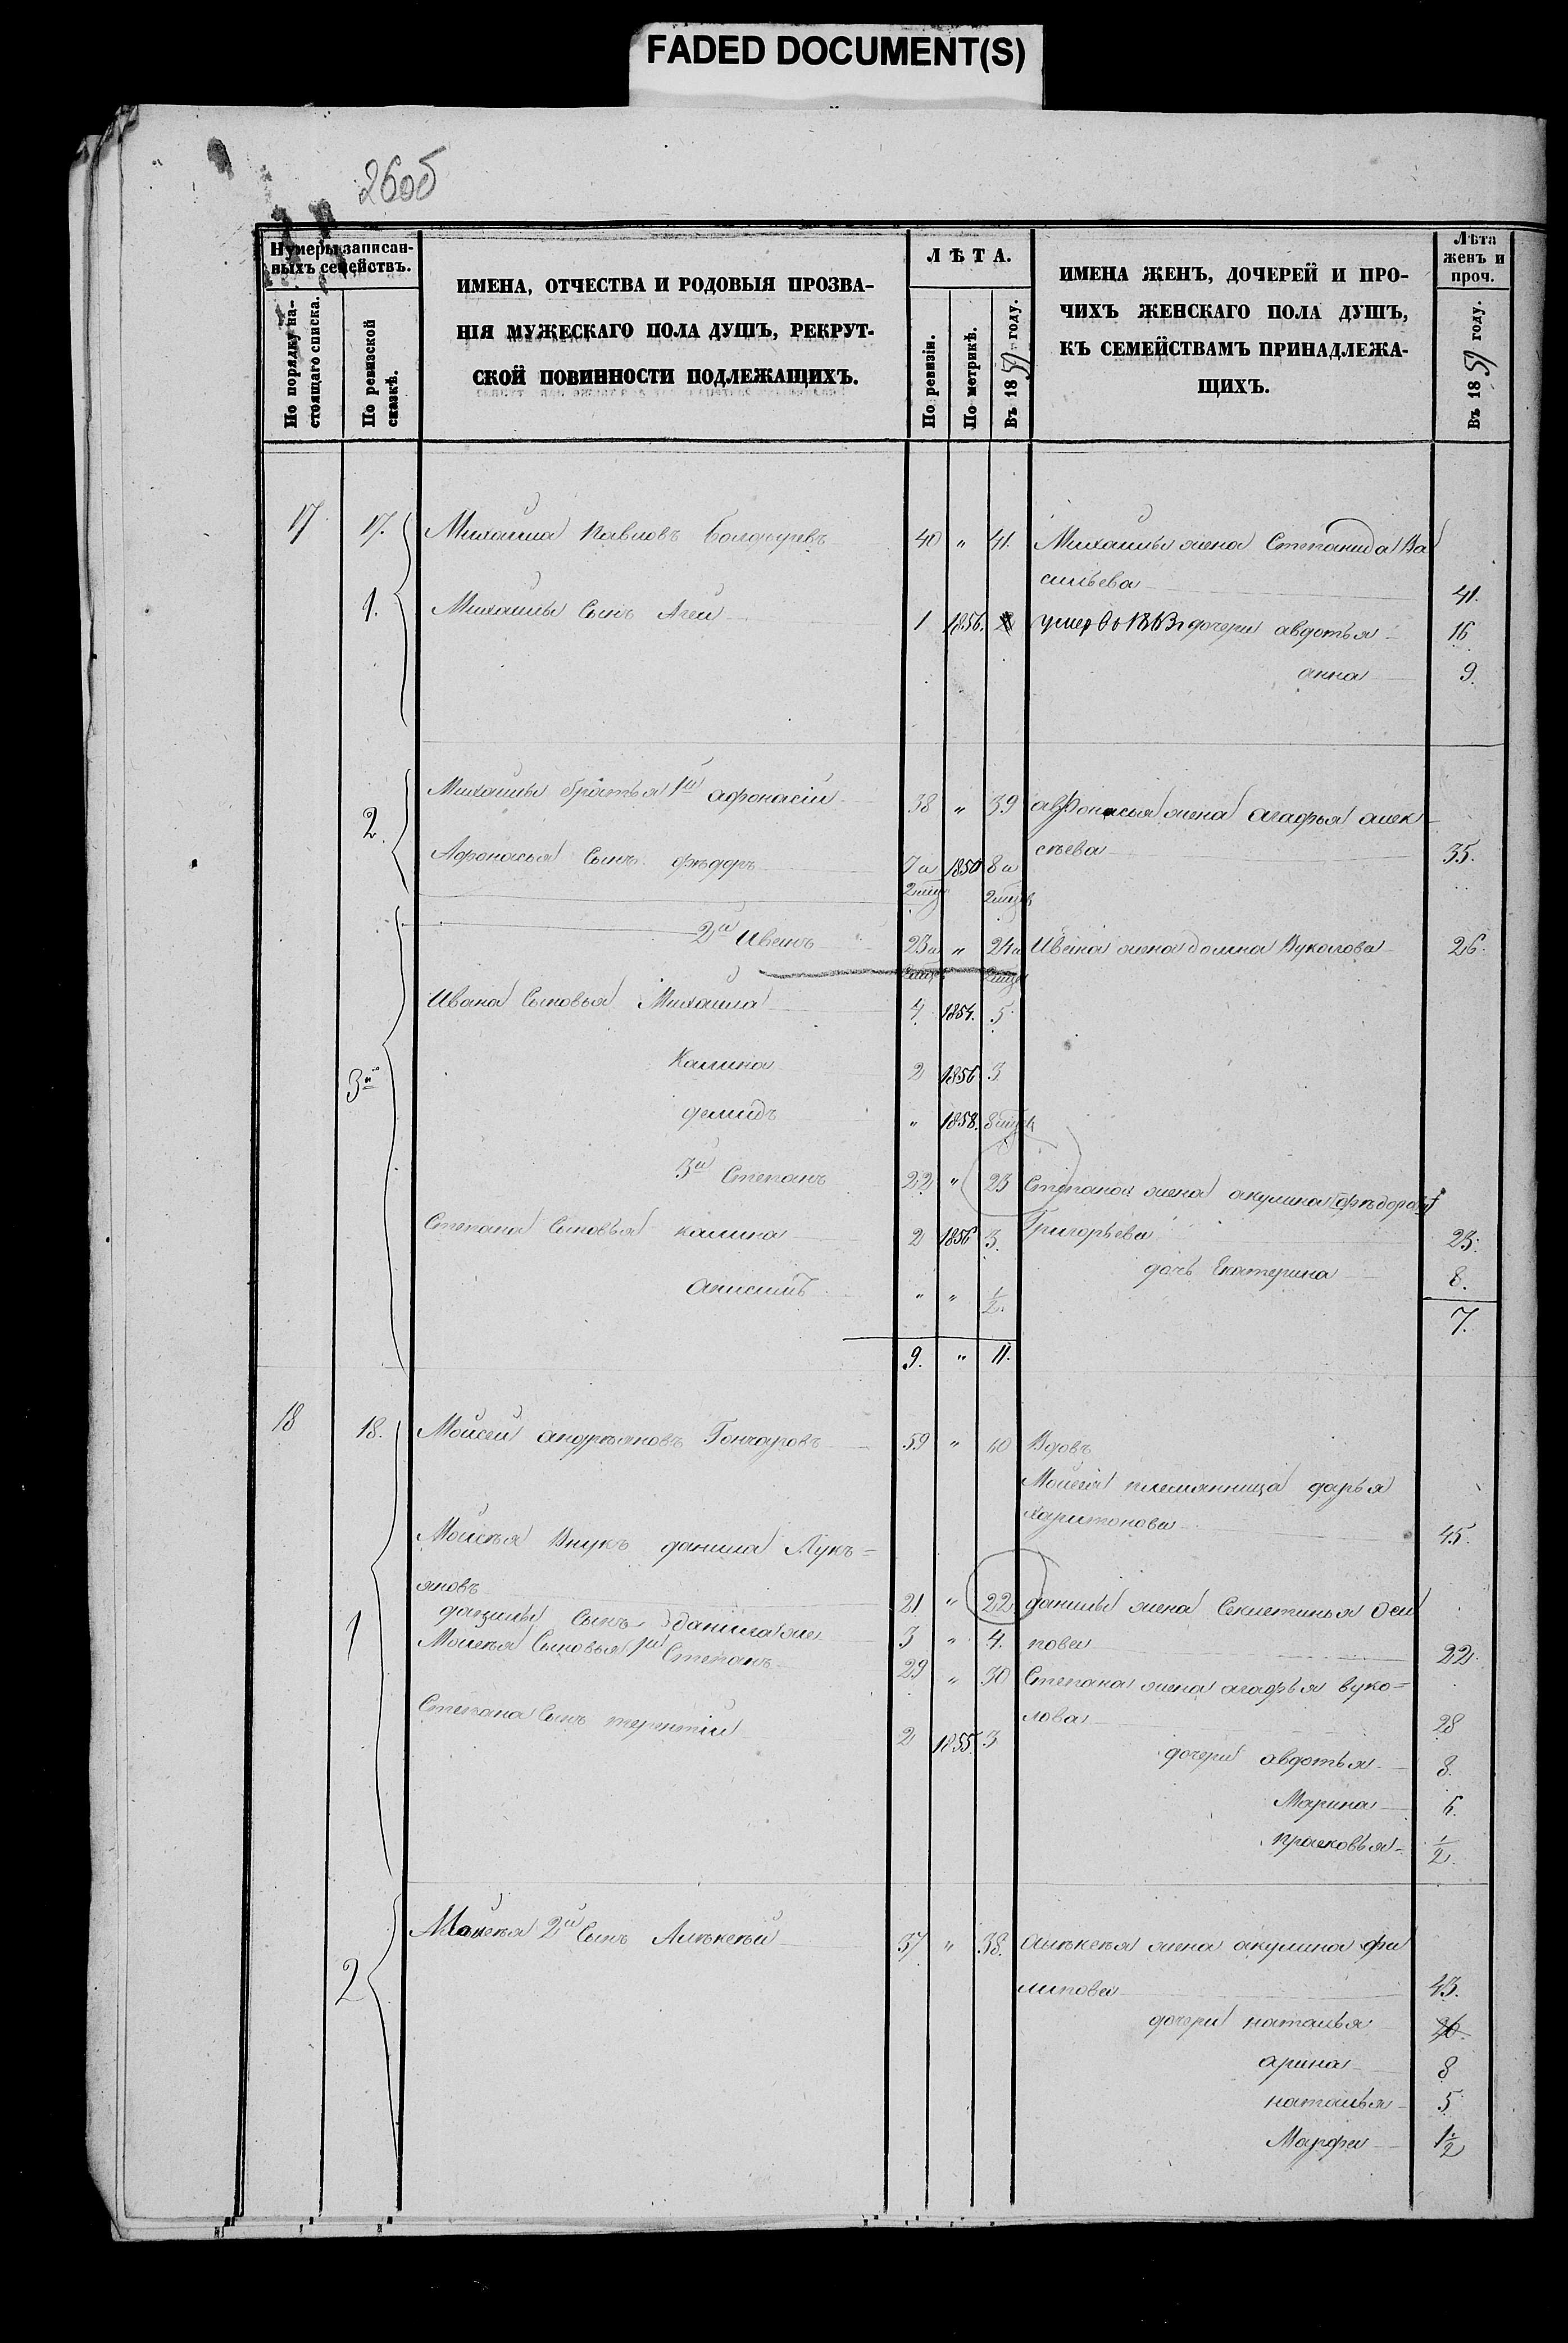 FADED DOCUMENT(S)
26об
Нумеры записан-
ныхъ семействъ.
По порядку на-
стоящаго списка.
По ревизской
сказкѣ.
ИМЕНА, ОТЧЕСТВА И РОДОВЫЯ ПРОЗВА-
НІЯ МУЖЕСКАГО ПОЛА ДУШЪ, РЕКРУТ-
СКОЙ ПОВИННОСТИ ПОДЛЕЖАЩИХЪ.
ЛѢТА.
По ревизіи.
По метрикѣ.
Въ 1859 году.
ИМЕНА ЖЕНЪ, ДОЧЕРЕЙ И ПРО-
ЧИХЪ ЖЕНСКАГО ПОЛА ДУШЪ,
КЪ СЕМЕЙСТВАМЪ ПРИНАДЛЕЖА-
ЩИХЪ.
Лѣта
женъ и
проч.
Въ 1859 году.
17 17. Михаила Павловъ 40 " 41. Михаилы жена Степанида Ва
сильева 41.
1. Михаилы Сынъ Агеи 1 1856. 2 умер в 1863г дочери авдотья 16
анна 9.
2. Михаилы братья 1й афонасіи 38 " 39 афонасья жена агафья алек
сѣева 35.
Афонасья Сынъ фѣдоръ 7 и 1850 8 и
2 мцу 2 мцув
2й Иванъ 23 и " 24 и Ивана жена домна Вуколова 26.
3й Ивана Сыновья Михаила 4 1854. 5
Калина 2 1856 3
демидъ " 1858.
3й Степанъ 22 " 23 Степана жена акулина фѣдорова
Григорьева 23.
Степана Сыновья калина 2 1856 3.
дочь Екатерина 8.
Анисимъ " " 1/2.
7.
9. " 11.
18 18. Мойсей андреяновъ Гончаровъ 59 " 60 Вдовъ
Мойсея племянница дарья
харитонова 45.
Мойсея Внукъ данила Лукъ=
яновъ 21 " 22 данилы жена Секлетинья Оси
1 данилы Сынъ данила же 3 " 4. пова 22.
Мойсея Сыновья 1й Степанъ 29 " 30 Степана жена агафья вуко=
лова 28
Степана Сынъ терентіи 2 1855. 3
дочери авдотья 8.
Марина 6.
прасковья 1/2.
2 Мойсея 2й Сынъ Алѣксѣй 37 " 38. алѣксѣя жена акулина фи
липова 43.
дочери наталья
арина 8
наталья 5
Марфа 1 1/2